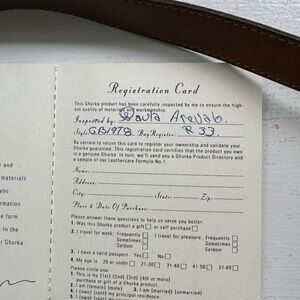 Registration Card
This Ghurka product has been carefully inspected by me to ensure the high-
est quality of materials and workmanship.
Inspected by: Laura Arevalo.
Style GB1978. Bag Register R 33.
Be certain to return this card to register your ownership and validate your
Ghurka guarantee. This registration card identifies that the product you own
is genuine Ghurka. In turn, we'll send you a Ghurka Product Directory and
a sample of our Leathercare Formula No. 1.
Name:
Address:
City: State: Zip:
Place & Date Of Purchase:
Please answer these questions to help us serve you better.
1. Was this Ghurka product a gift or self purchase
2. I travel for work: Frequently I travel for pleasure: Frequently
Sometimes Sometimes
Seldom Seldom
3. I have a valid passport Yes No
4. My age is 20 or under 21-30 31-40 41-50 51-60
Please circle one:
1. This is my (1st) (2nd) (3rd) (4th or more)
purchase or gift of a Ghurka product.
2. I am (male) (female) 3. I am (married) (unmarried)
4. I (own) (rent) my principal residence
y and
materials
you
ormation
e form
other
Ghurka